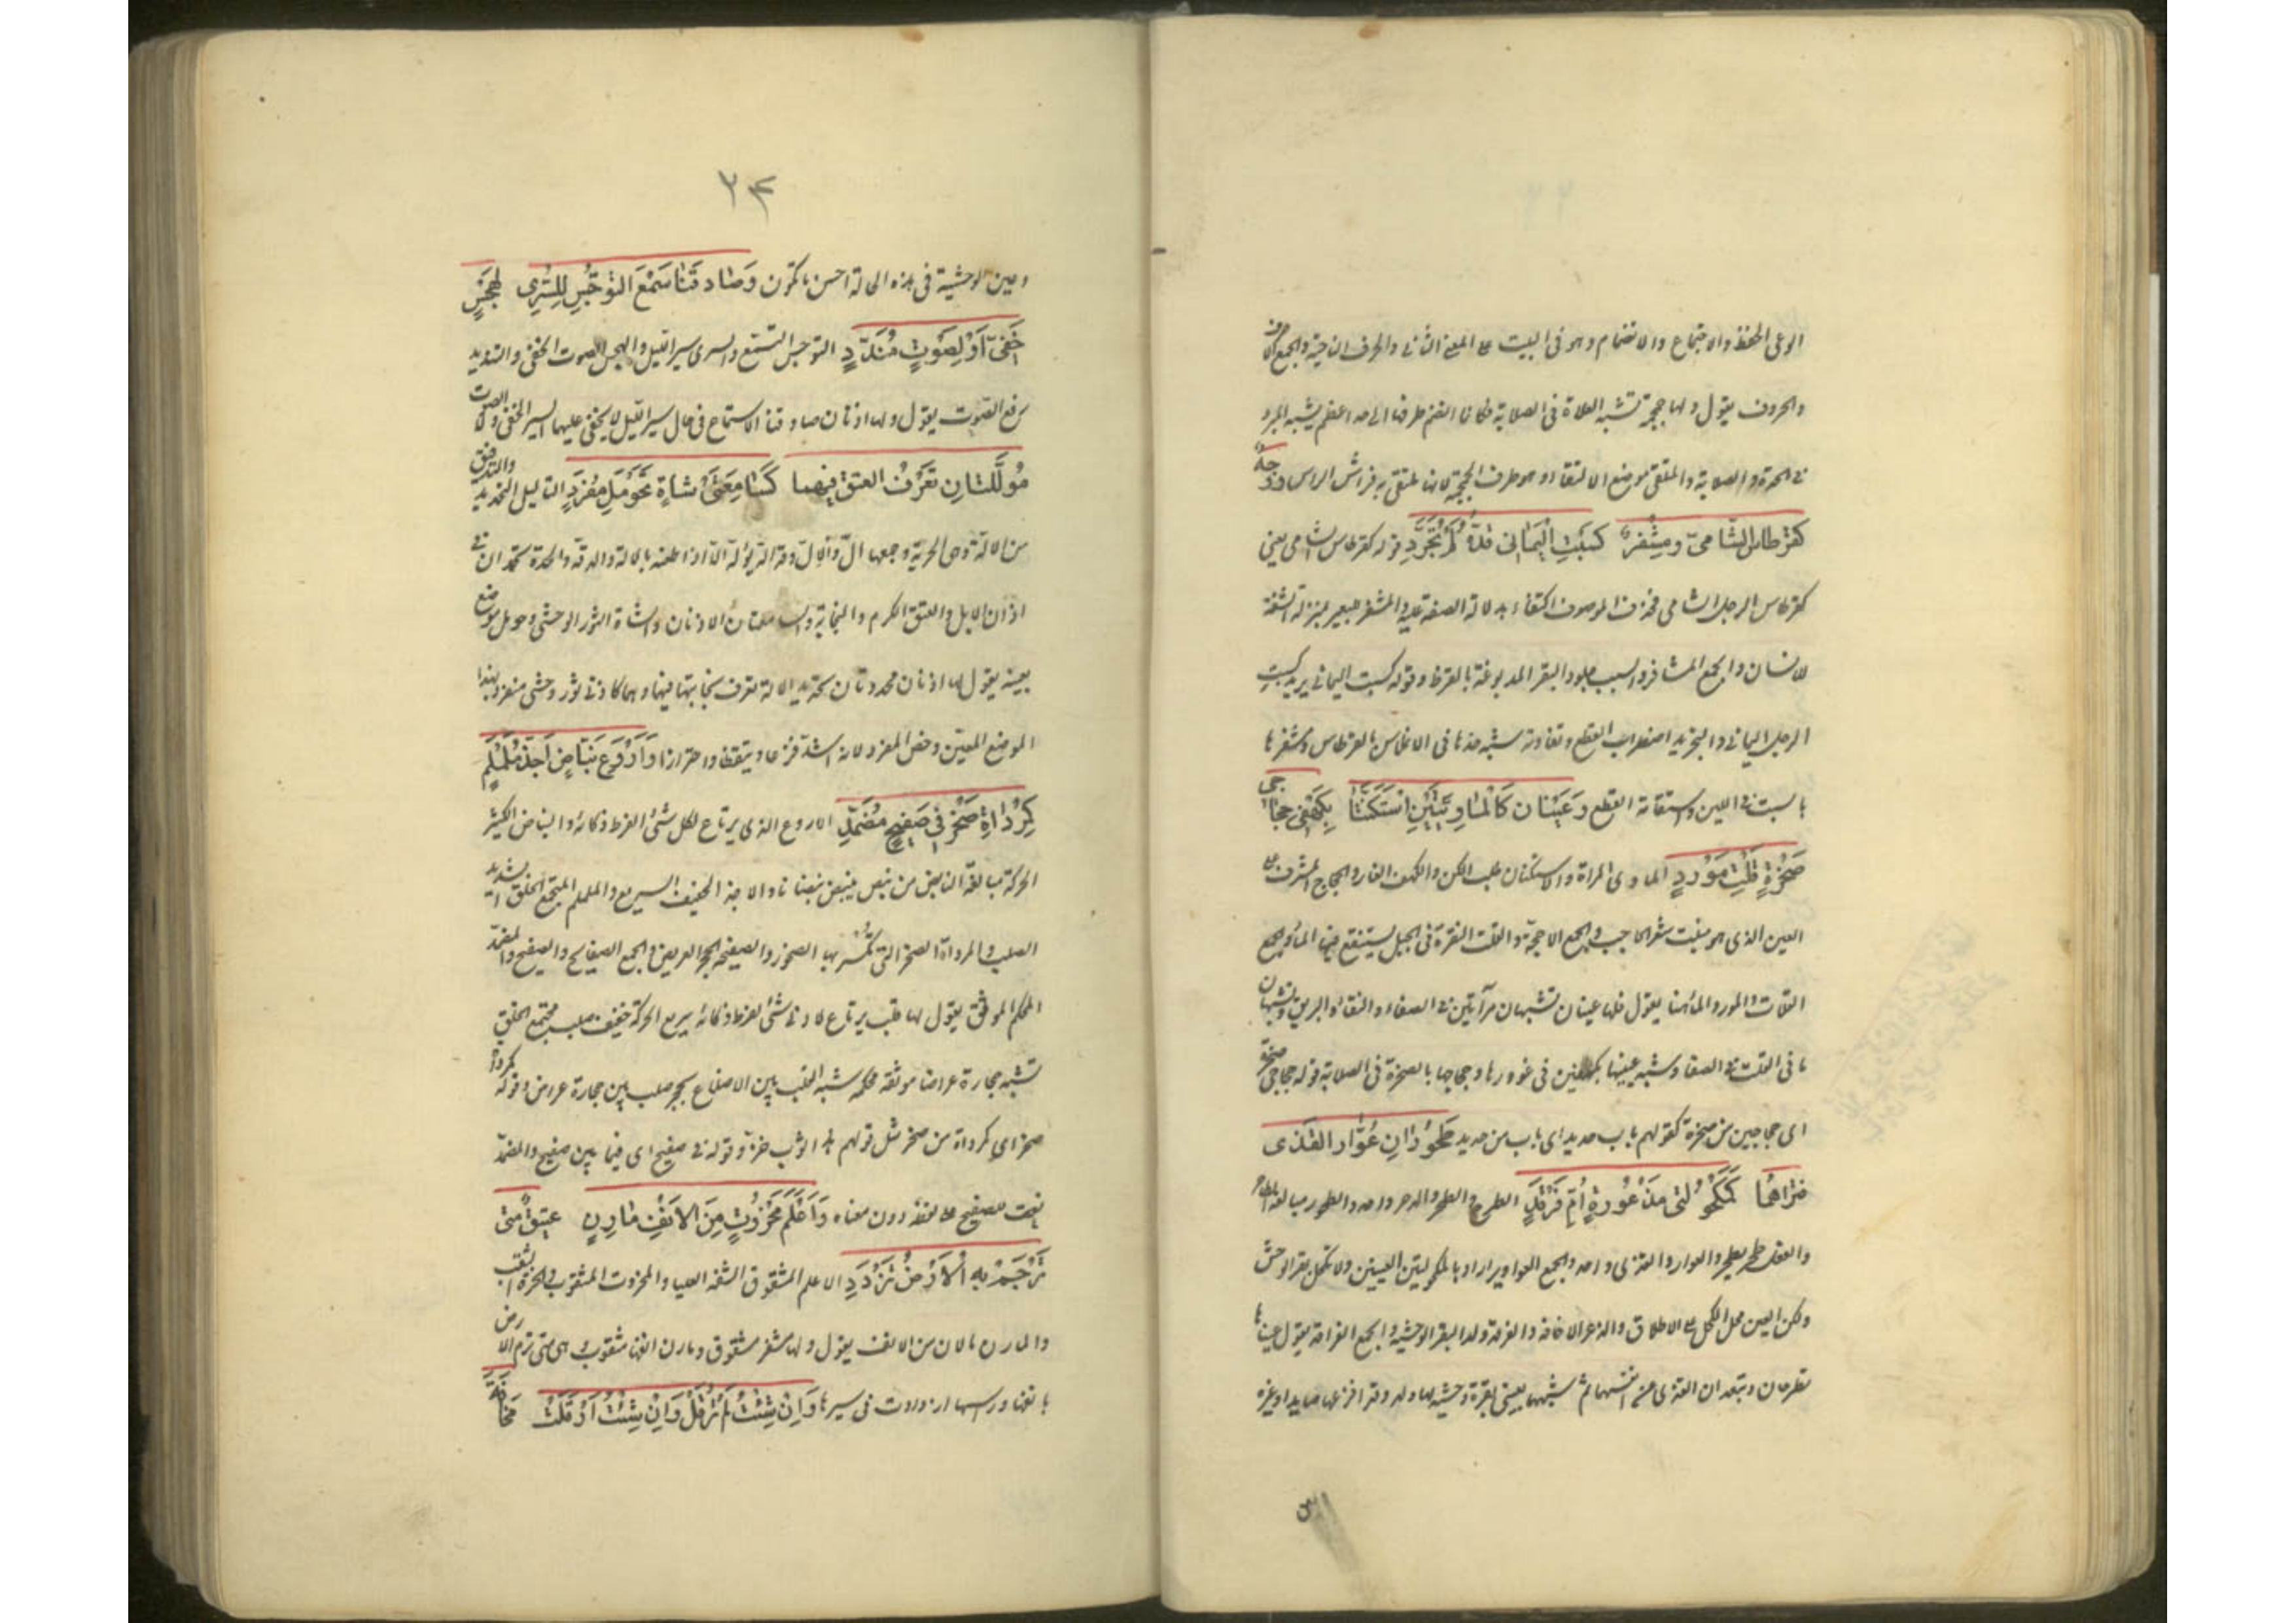 الوعی الحفظ والاجتماع والانضمام وهو فی البیت علی المعنی الثانی والحرف الناحیة والجمع الاحرف
والحروف یقول ولها جمجمة تشبه العلاة فی الصلابة فکانما انضم طرفها الی حد اعظم یشبه المبرد
فی الحدة والصلابة والملتقی موضع الالتقاء وهو طرف الجمجمة لانها تلتقی به فراش الراس وَوَجْهٌ
کَقِرْطَاسِ الشَّامِیِّ وَمِشْفَرٌ کَسِبْتِ الْیَمَانِی قَدُّهُ لَمْ یُجَرَّدِ قوله کقرطاس الشامی یعنی
کقرطاس الرجل الشامی فحذف الموصوف اکتفاء بدلالة الصفة علیه والمشفر للبعیر بمنزلة الشفة
للانسان والجمع المشافر والسبت جلود البقر المدبوغة بالقرظ وقوله کسبت الیمانی یرید کسبت
الرجل الیمانی والتجرید اضطراب القطع وتفاوته شبه خدها فی الانملاس بالقرطاس ومشفرها
بالسبت فی اللین واستقامة القطع وَعَیْنَانِ کَالْمَاوِیَّتَیْنِ اسْتَکَنَّتَا بِکَهْفَیْ حِجَاجَیْ
صَخْرَةٍ قَلْتِ مَوْرِدِ الماویة المراة والاستکنان طلب الکن والکهف الغار والحجاج المشرف علی
العین الذی هو منبت شعر الحاجب والجمع الاحجة والقلت النقرة فی الجبل یستنقع فیها الماء والجمع
القلات والمورد الماء هنا یقول فلها عینان تشبهان مرآتین فی الصفاء والنقاء والبریق وتشبهان
ماء فی القلت فی الصفا وشبه عینیها بکهفین فی غوورها وحجاجیها بالصخرة فی الصلابة قوله حجاجی صخرة
ای حجاجین من صخرة کقولهم باب حدید ای باب من حدید طَحُورَانِ عُوَّارَ الْقَذَی
فَتَرَاهُمَا کَمَکْحُولَتَیْ مَذْعُورَةٍ أُمِّ فَرْقَدِ الطرح والطحر والدحر واحد والطحور مبالغة الطاحر
والفعل طحر یطحر والعوار والقذی واحد والجمع العواویر اراد بالمکحولتین العینین ولا تکحل بقر الوحش
ولکن العین محل الکحل علی الاطلاق والذعر الاخافة والفرقد ولد البقر الوحشیة والجمع الفراقد یقول عیناها
تطرحان وتبعدان القذی عن انفسهما ثم شبههما بعینی بقرة وحشیة لها ولد وقد افزعها صاید او غیره
۲۴
وعین الوحشیة فی هذه الحالة احسن ما تکون وَصَادِقَتَا سَمْعِ التَّوَجُّسِ لِلسُّرَی لِهَجْسٍ
خَفِیٍّ أَوْ لِصَوْتٍ مُنَدَّدِ التوجس التسمع والسری سیر اللیل والهجس الصوت الخفی والتندید
رفع الصوت یقول ولها اذنان صادقتا الاستماع فی حال سیر اللیل لا یخفی علیهما السر الخفی ولا الصوت
مُؤَلَّلَتَانِ تَعْرِفُ الْعِتْقَ فِیهِمَا کَسَامِعَتَیْ شَاةٍ بِحَوْمَلِ مُفْرَدِ التالیل التحدید والتدقیق
من الالة وهی الحربة وجمعها ال وآلال وقد اله یؤله الا اذا طعنه بالالة والدقة والحدة تحمدان فی
اذان الابل والعتق الکرم والنجابة والسامعتان الاذنان والشاة الثور الوحشی وحومل موضع
بعینه یقول لها اذنان محددتان تحدید الالة تعرف نجابتها فیهما وهما کاذنی ثور وحشی منفرد بهذا
الموضع المعین وخص المفرد لانه اشد فزعا وتیقظا واحترازا وَأَرْوَعُ نَبَّاضٌ أَحَذُّ مُلَمْلَمٌ
کَمِرْدَاةِ صَخْرٍ فِی صَفِیحٍ مُصَمَّدِ الاروع الذی یرتاع لکل شئ لفرط ذکائه والنباض الکثیر
الحرکة مبالغة النابض من نبض ینبض نبضانا والاحذ الخفیف السریع والململم المجتمع الخلق الشدید
الصلب والمرداة الصخر التی تکسر بها الصخور والصفیحة الحجر العریض والجمع الصفایح والصفیح والمصمد
المحکم الموثق یقول لها قلب یرتاع لادنی شئ لفرط ذکائه سریع الحرکة خفیف صلب مجتمع الخلق
تشبه حجارة عراضا موثقة محکمة شبه القلب بین الاضلاع بحجر صلب بین حجارة عراض وقوله کمرداة
صخر ای کمرداة من صخر مثل قولهم هذا ثوب خز وقوله فی صفیح ای فیما بین صفیح والمصمد
نعت صفیح علی لفظه دون معناه وَأَعْلَمُ مَخْرُوتٌ مِنَ الْأَنْفِ مَارِنٌ عَتِیقٌ مَتَی
تَرْجُمْ بِهِ الْأَرْضَ تَزْدَدِ الاعلم المشقوق الشفة العلیا والمخروت المثقوب والخرت الثقب
والمارن مالان من الانف یقول ولها مشفر مشقوق ومارن انفها مثقوب هی متی ترم الارض
بانفها وراسها ازدادت فی سیرها وَإِنْ شِئْتُ لَمْ تُرْقِلْ وَإِنْ شِئْتُ أَرْقَلَتْ مَخَافَةَ